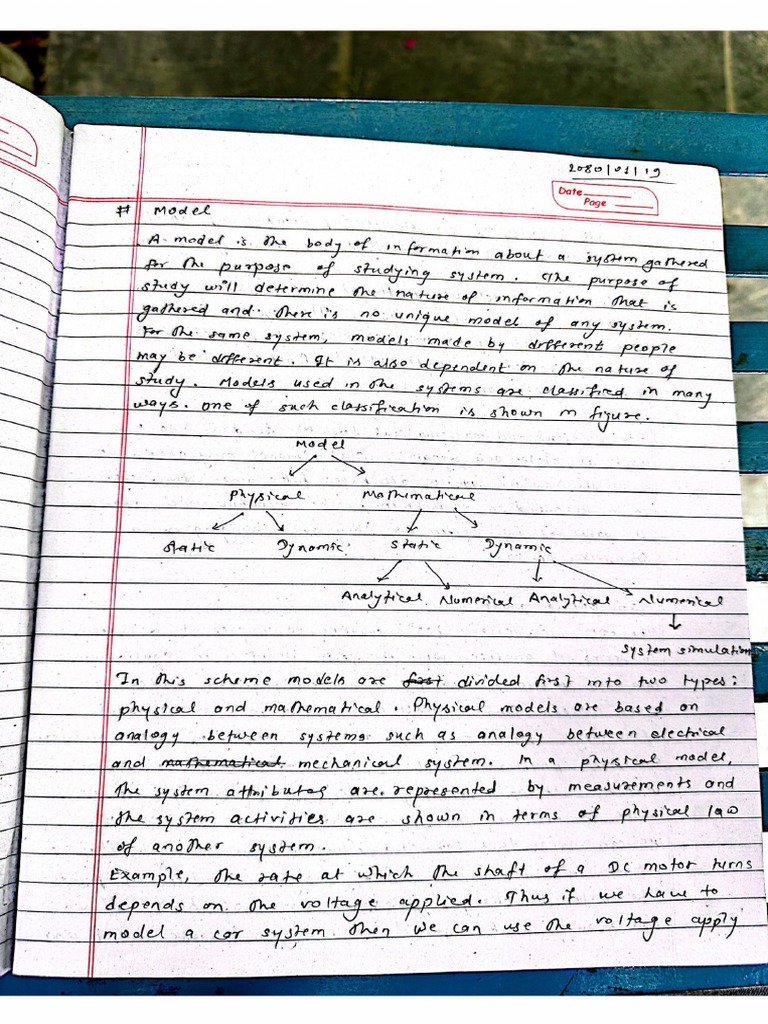 2080/01/19
Date
Page
# Model
A model is the body of information about a system gathered
for the purpose of studying system. The purpose of
study will determine the nature of information that is
gathered and there is no unique model of any system.
For the same system, models made by different people
may be different. It is also dependent on the nature of
study. Models used in the systems are classified in many
ways. One of such classification is shown in figure.
Model
Physical Mathematical
Static Dynamic Static Dynamic
Analytical Numerical Analytical Numerical
System simulation
In this scheme models are first divided first into two types:
physical and mathematical. Physical models are based on
analogy between systems such as analogy between electrical
and mathematical mechanical system. In a physical model,
the system attributes are represented by measurements and
the system activities are shown in terms of physical law
of another system.
Example, the rate at which the shaft of a DC motor turns
depends on the voltage applied. Thus if we have to
model a car system then we can use the voltage apply